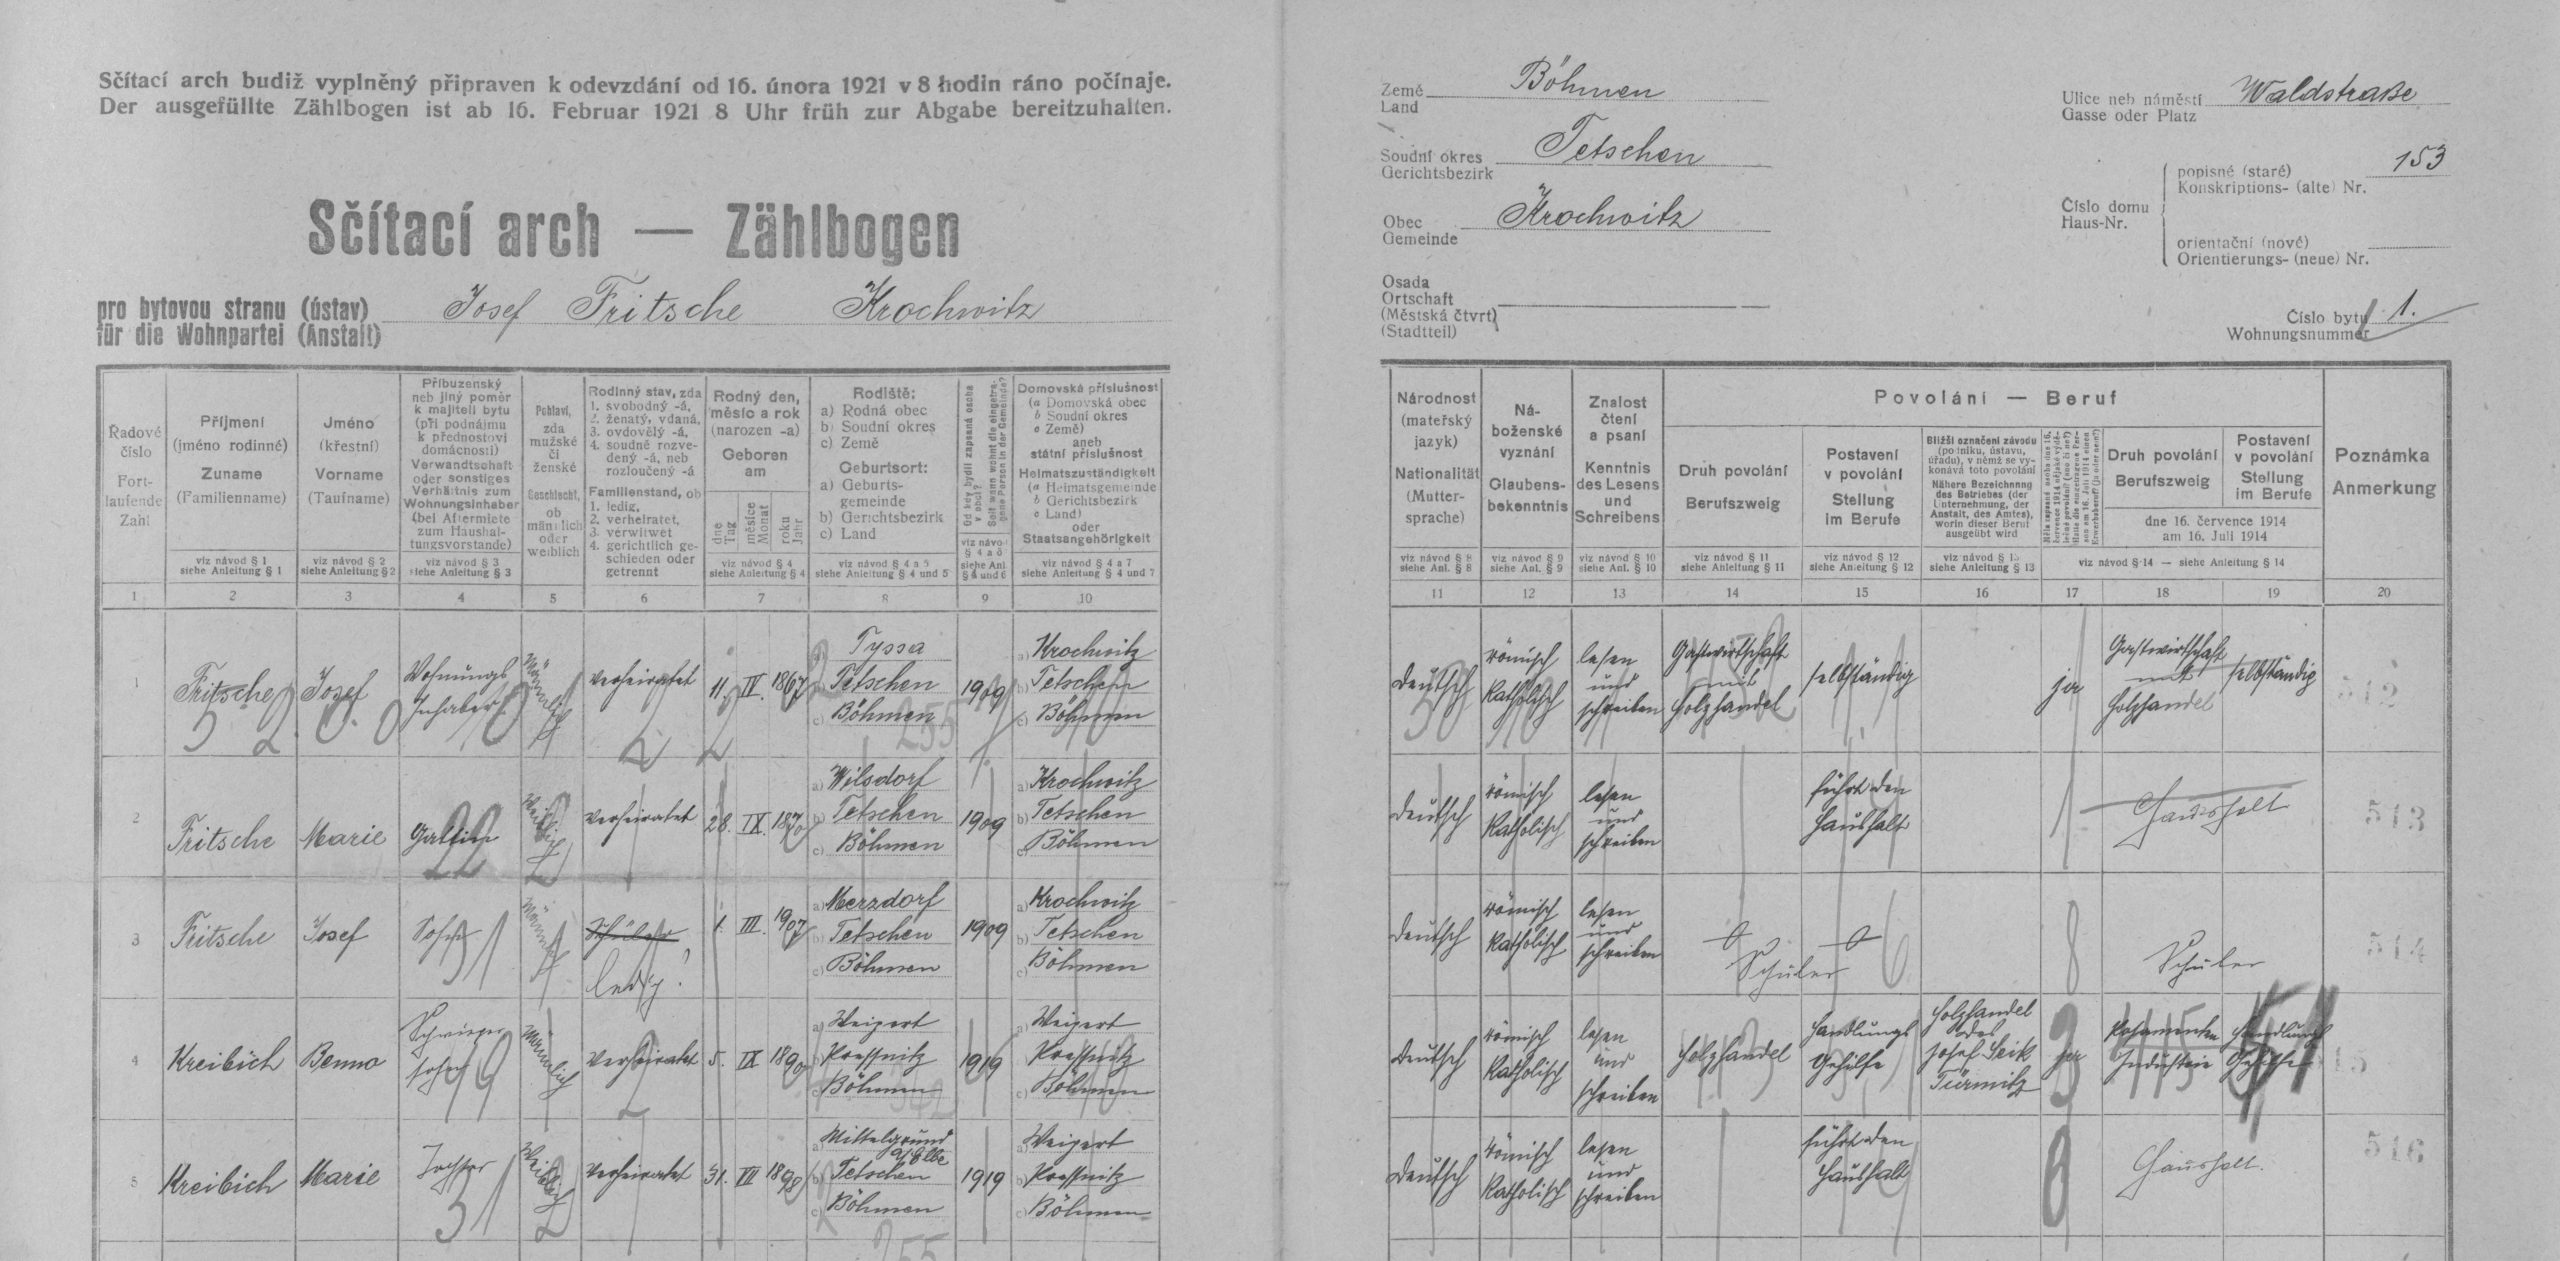 Sčítací arch budiž vyplněný připraven k odevzdání od 16. února 1921 v 8 hodin ráno počínaje.
Der ausgefüllte Zählbogen ist ab 16. Februar 1921 8 Uhr früh zur Abgabe bereitzuhalten.
Sčítací arch — Zählbogen
pro bytovou stranu (ústav)
für die Wohnpartei (Anstalt)
Josef Fritsche Krochwitz
Země
Land
Böhmen
Soudní okres
Gerichtsbezirk
Tetschen
Obec
Gemeinde
Krochwitz
Osada
Ortschaft
(Městská čtvrt)
(Stadtteil)
Ulice neb náměstí
Gasse oder Platz
Waldstraße
Číslo domu
Haus-Nr.
popisné (staré)
Konskriptions- (alte) Nr.
153
orientační (nové)
Orientierungs- (neue) Nr.
Číslo bytu
Wohnungsnummer
1.
Řadové
číslo
Fort-
laufende
Zahl
Příjmení
(jméno rodinné)
Zuname
(Familienname)
viz návod § 1
siehe Anleitung § 1
Jméno
(křestní)
Vorname
(Taufname)
viz návod § 2
siehe Anleitung § 2
Příbuzenský
neb jiný poměr
k majiteli bytu
(při podnájmu
k přednostovi
domácnosti)
Verwandtschaft
oder sonstiges
Verhältnis zum
Wohnungsinhaber
(bei Aftermiete
zum Haushal-
tungsvorstande)
viz návod § 3
siehe Anleitung § 3
Pohlaví,
zda
mužské
či
ženské
Geschlecht,
ob
männlich
oder
weiblich
Rodinný stav, zda
1. svobodný -á,
2. ženatý, vdaná,
3. ovdovělý -á,
4. soudně rozve-
dený -á, neb
rozloučený -á
Familienstand, ob
1. ledig,
2. verheiratet,
3. verwitwet
4. gerichtlich ge-
schieden oder
getrennt
Rodný den,
měsíc a rok
(narozen -a)
Geboren
am
dne
Tag
měsíce
Monat
roku
Jahr
viz návod § 4
siehe Anleitung § 4
Rodiště:
a) Rodná obec
b) Soudní okres
c) Země
Geburtsort:
a) Geburts-
gemeinde
b) Gerichtsbezirk
c) Land
viz návod § 4 a 5
siehe Anleitung § 4 und 5
Od kdy bydlí zapsaná osoba
v obci?
Seit wann wohnt die eingetra-
gene Person in der Gemeinde?
viz návod
§ 4 a 6
siehe Anl.
§ 4 und 6
Domovská příslušnost
(a Domovská obec
b Soudní okres
c Země)
aneb
státní příslušnost
Heimatszuständigkeit
(a Heimatsgemeinde
b Gerichtsbezirk
c Land)
oder
Staatsangehörigkeit
viz návod § 4 a 7
siehe Anleitung § 4 und 7
Národnost
(mateřský
jazyk)
Nationalität
(Mutter-
sprache)
viz návod § 8
siehe Anl. § 8
Ná-
boženské
vyznání
Glaubens-
bekenntnis
viz návod § 9
siehe Anl. § 9
Znalost
čtení
a psaní
Kenntnis
des Lesens
und
Schreibens
viz návod § 10
siehe Anl. § 10
Povolání — Beruf
Druh povolání
Berufszweig
viz návod § 11
siehe Anleitung § 11
Postavení
v povolání
Stellung
im Berufe
viz návod § 12
siehe Anleitung § 12
Bližší označení závodu
(podniku, ústavu,
úřadu), v němž se vy-
konává toto povolání
Nähere Bezeichnung
des Betriebes (der
Unternehmung, der
Anstalt, des Amtes),
worin dieser Beruf
ausgeübt wird
viz návod § 13
siehe Anleitung § 13
Druh povolání
Berufszweig
Postavení
v povolání
Stellung
im Berufe
dne 16. července 1914
am 16. Juli 1914
viz návod § 14 — siehe Anleitung § 14
Poznámka
Anmerkung
1 2 3 4 5 6 7 8 9 10 11 12 13 14 15 16 17 18 19 20
1 Fritsche Josef Wohnungs Inhaber Männlich verheiratet 11. IV. 1867
a) Tyssa
b) Tetschen
c) Böhmen
255
1909
a) Krochwitz
b) Tetschen
c) Böhmen
Deutsch
römisch Katholisch
lesen und schreiben
Gastwirtschaft mit Holzhandel
selbständig
ja
Gastwirtschaft mit Holzhandel
selbständig
512
2 Fritsche Marie Gattin 22 Weiblich verheiratet 28. IX. 1870
a) Wilsdorf
b) Tetschen
c) Böhmen
1909
a) Krochwitz
b) Tetschen
c) Böhmen
Deutsch
römisch Katholisch
lesen und schreiben
führt den Haushalt
Haushalt
513
3 Fritsche Josef Sohn 31 Männlich Schüler ledig! 1. III. 1907
a) Merzdorf
b) Tetschen
c) Böhmen
1909
a) Krochwitz
b) Tetschen
c) Böhmen
Deutsch
römisch Katholisch
lesen und schreiben
Schüler
6
8
Schüler
514
4 Kreibich Benno Schwieger sohn Männlich verheiratet 5. IX 1890
a) Weipert
b) Pressnitz
c) Böhmen
1919
a) Weipert
b) Pressnitz
c) Böhmen
Deutsch
römisch Katholisch
lesen und schreiben
Holzhandel
Handlungs Gehilfe
Holzhandel des Josef Seik Türmitz
ja
Posamenten Industrie
Handlungs Gehilfe
515
5 Kreibich Marie Tochter 31 Weiblich verheiratet 31. VII 1898
a) Mittelgrund a/Elbe
b) Tetschen
c) Böhmen
255
1919
a) Weipert
b) Pressnitz
c) Böhmen
Deutsch
römisch Katholisch
lesen und schreiben
führt den Haushalt
8
Haushalt.
516